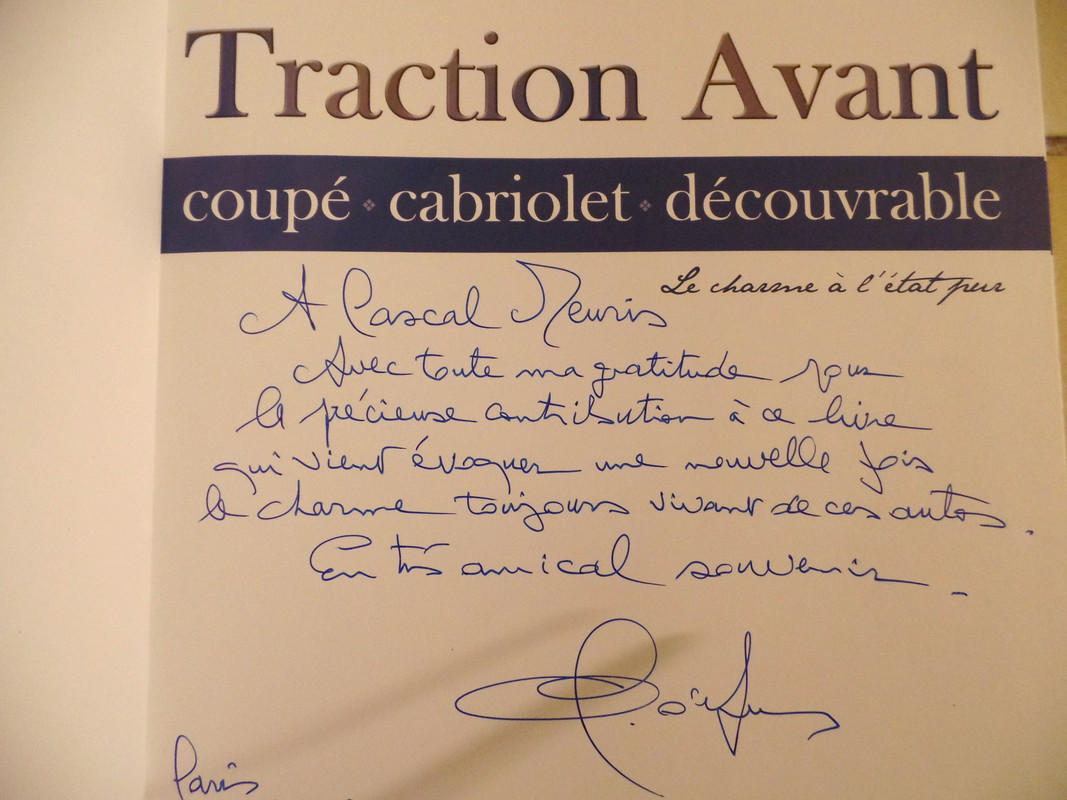 Traction Avant
coupé ❖ cabriolet ❖ découvrable
Le charme à l'état pur
A Pascal Meuris
Avec toute ma gratitude pour
la précieuse contribution à ce livre
qui vient évoquer une nouvelle fois
le charme toujours vivant de ces autos.
En très amical souvenir
Paris